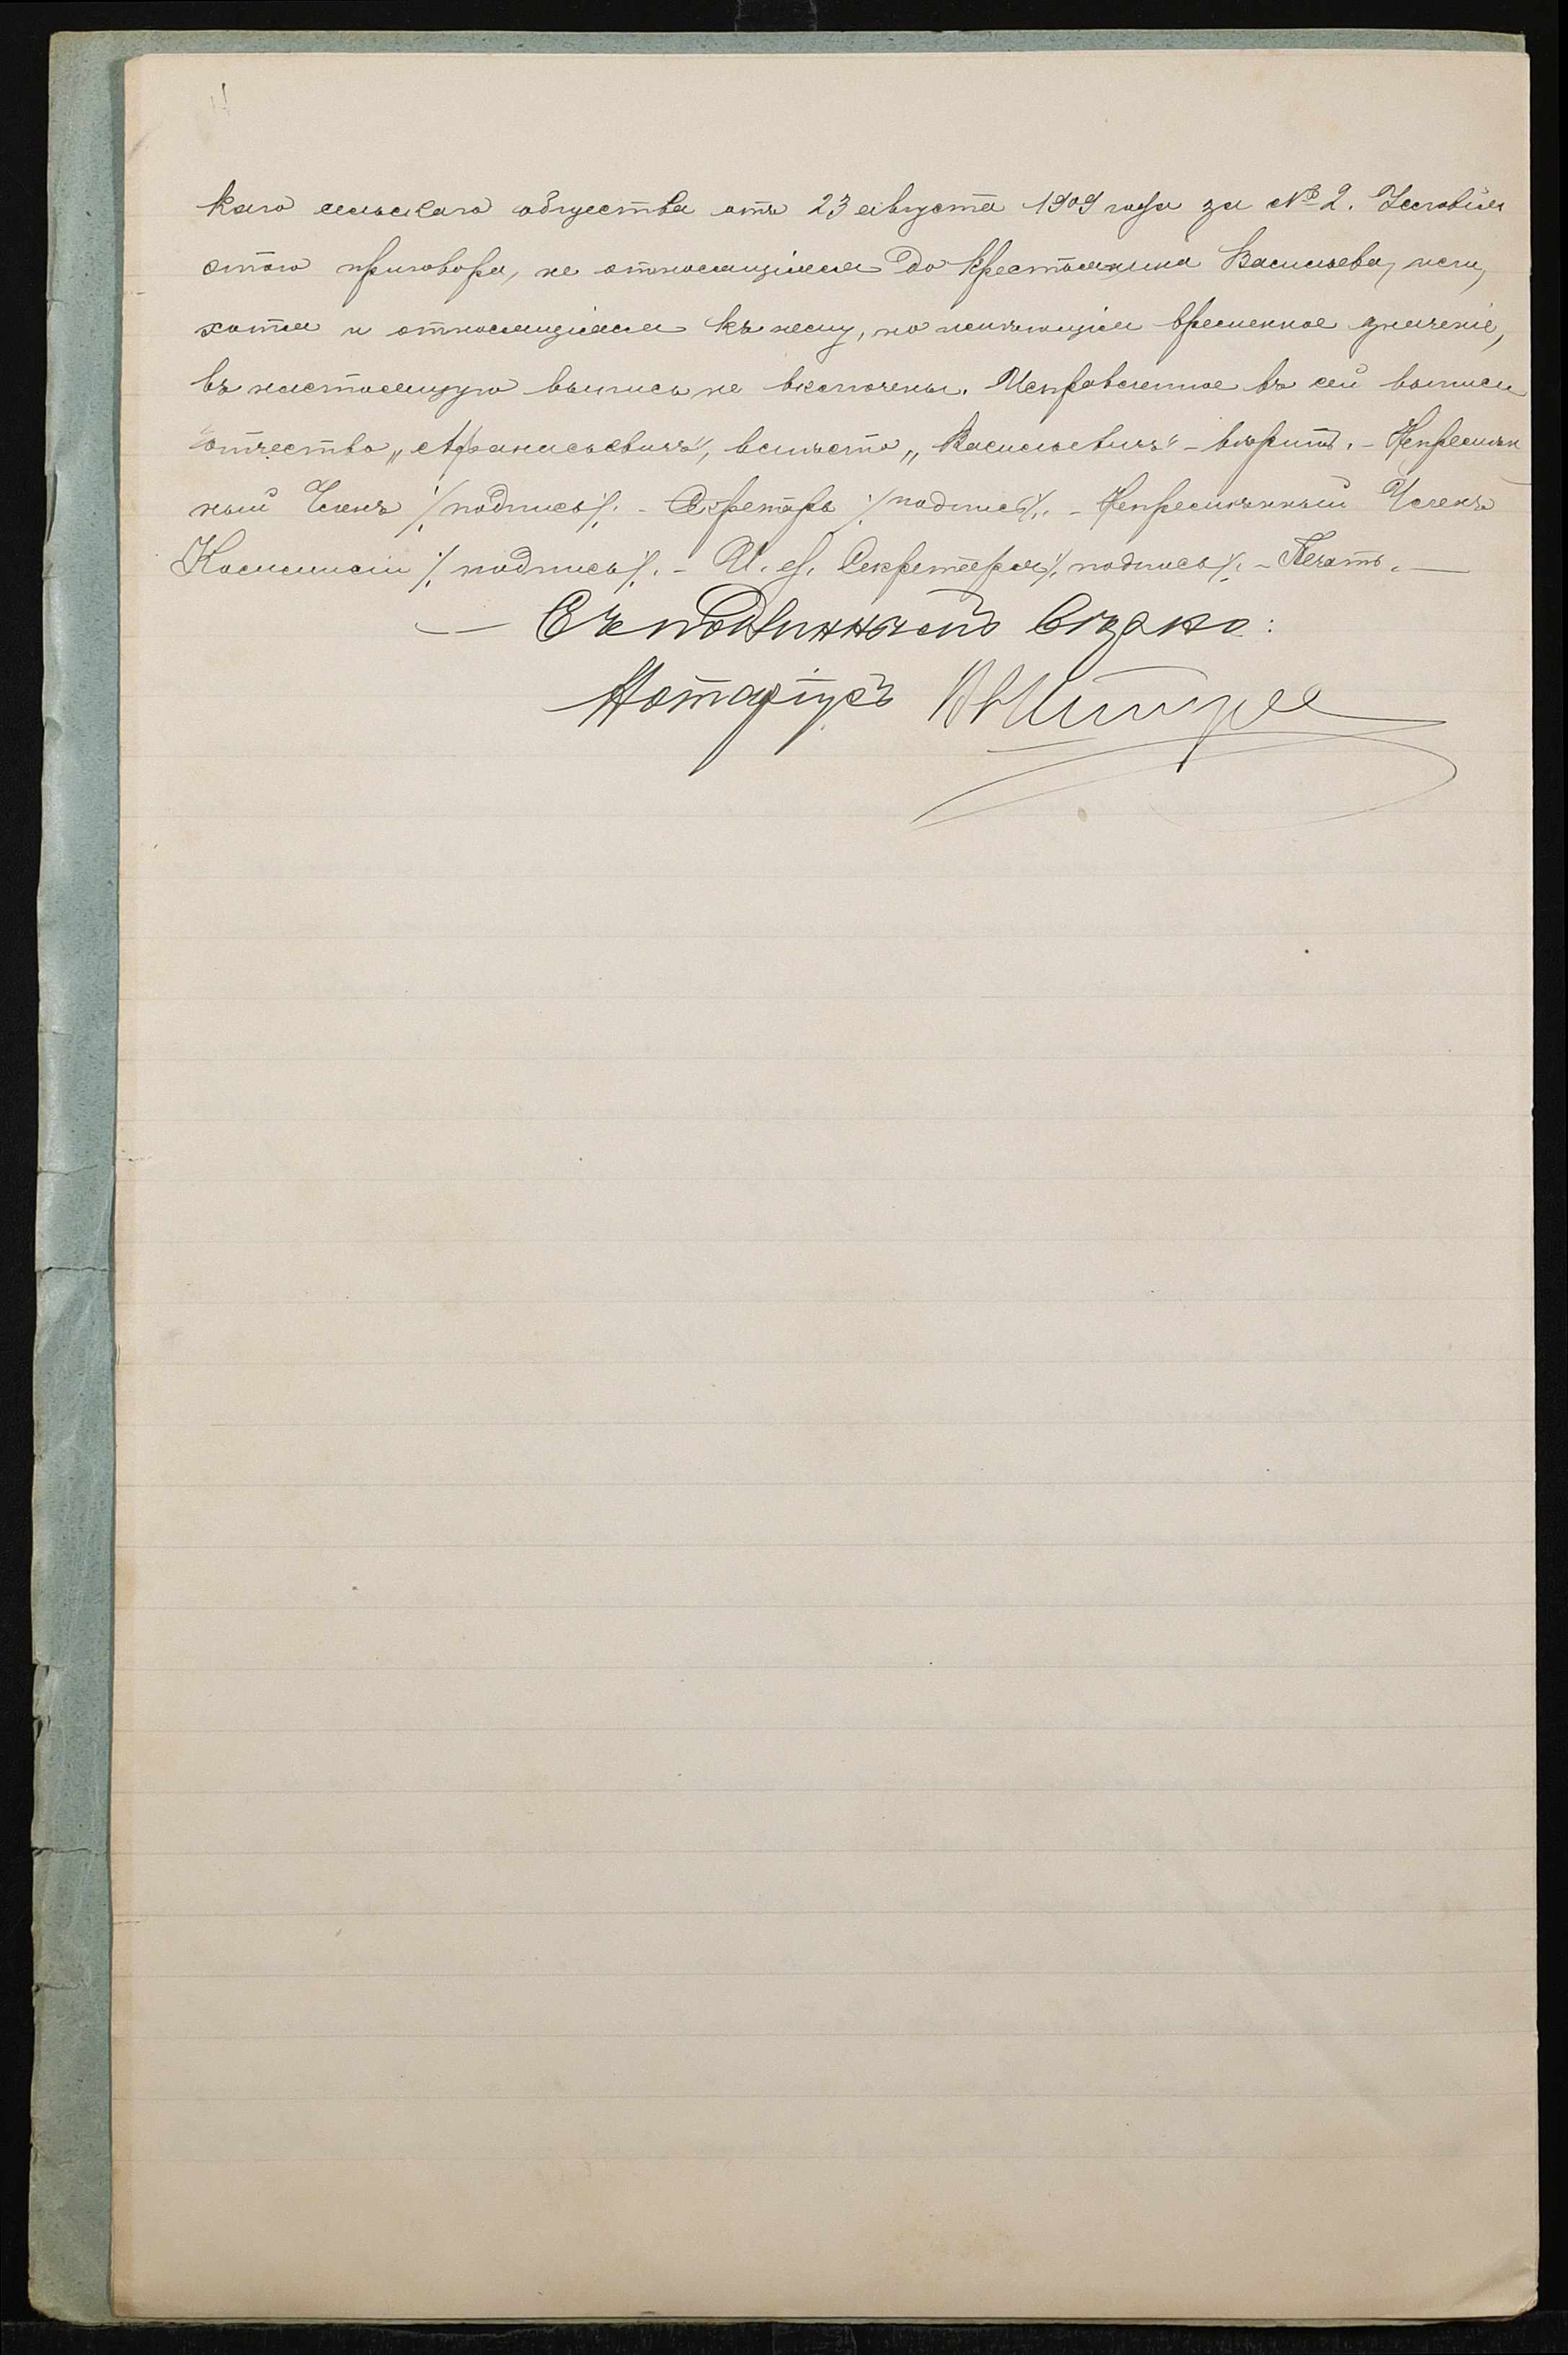 каго сельскаго общества отъ 23 августа 1909 года за № 2. Условія
этого приговора, не относящіяся до крестьянина Васильева, или,
хотя и относящіяся къ нему, но имѣющія временное значеніе,
въ настоящую выпись не включены. Исправленное въ сей выписи
отчество „Афанасьевичъ", вмѣсто „Васильевичъ" - вѣрить. - Непремѣн
ный Членъ /подпись/. - Секретарь /подпись/. - Непремѣнный Членъ
Коммисіи /подпись/. - И. об. Секретаря /подпись/. - Печать. —
— Съ подлиннымъ вѣрно:
Нотаріусъ